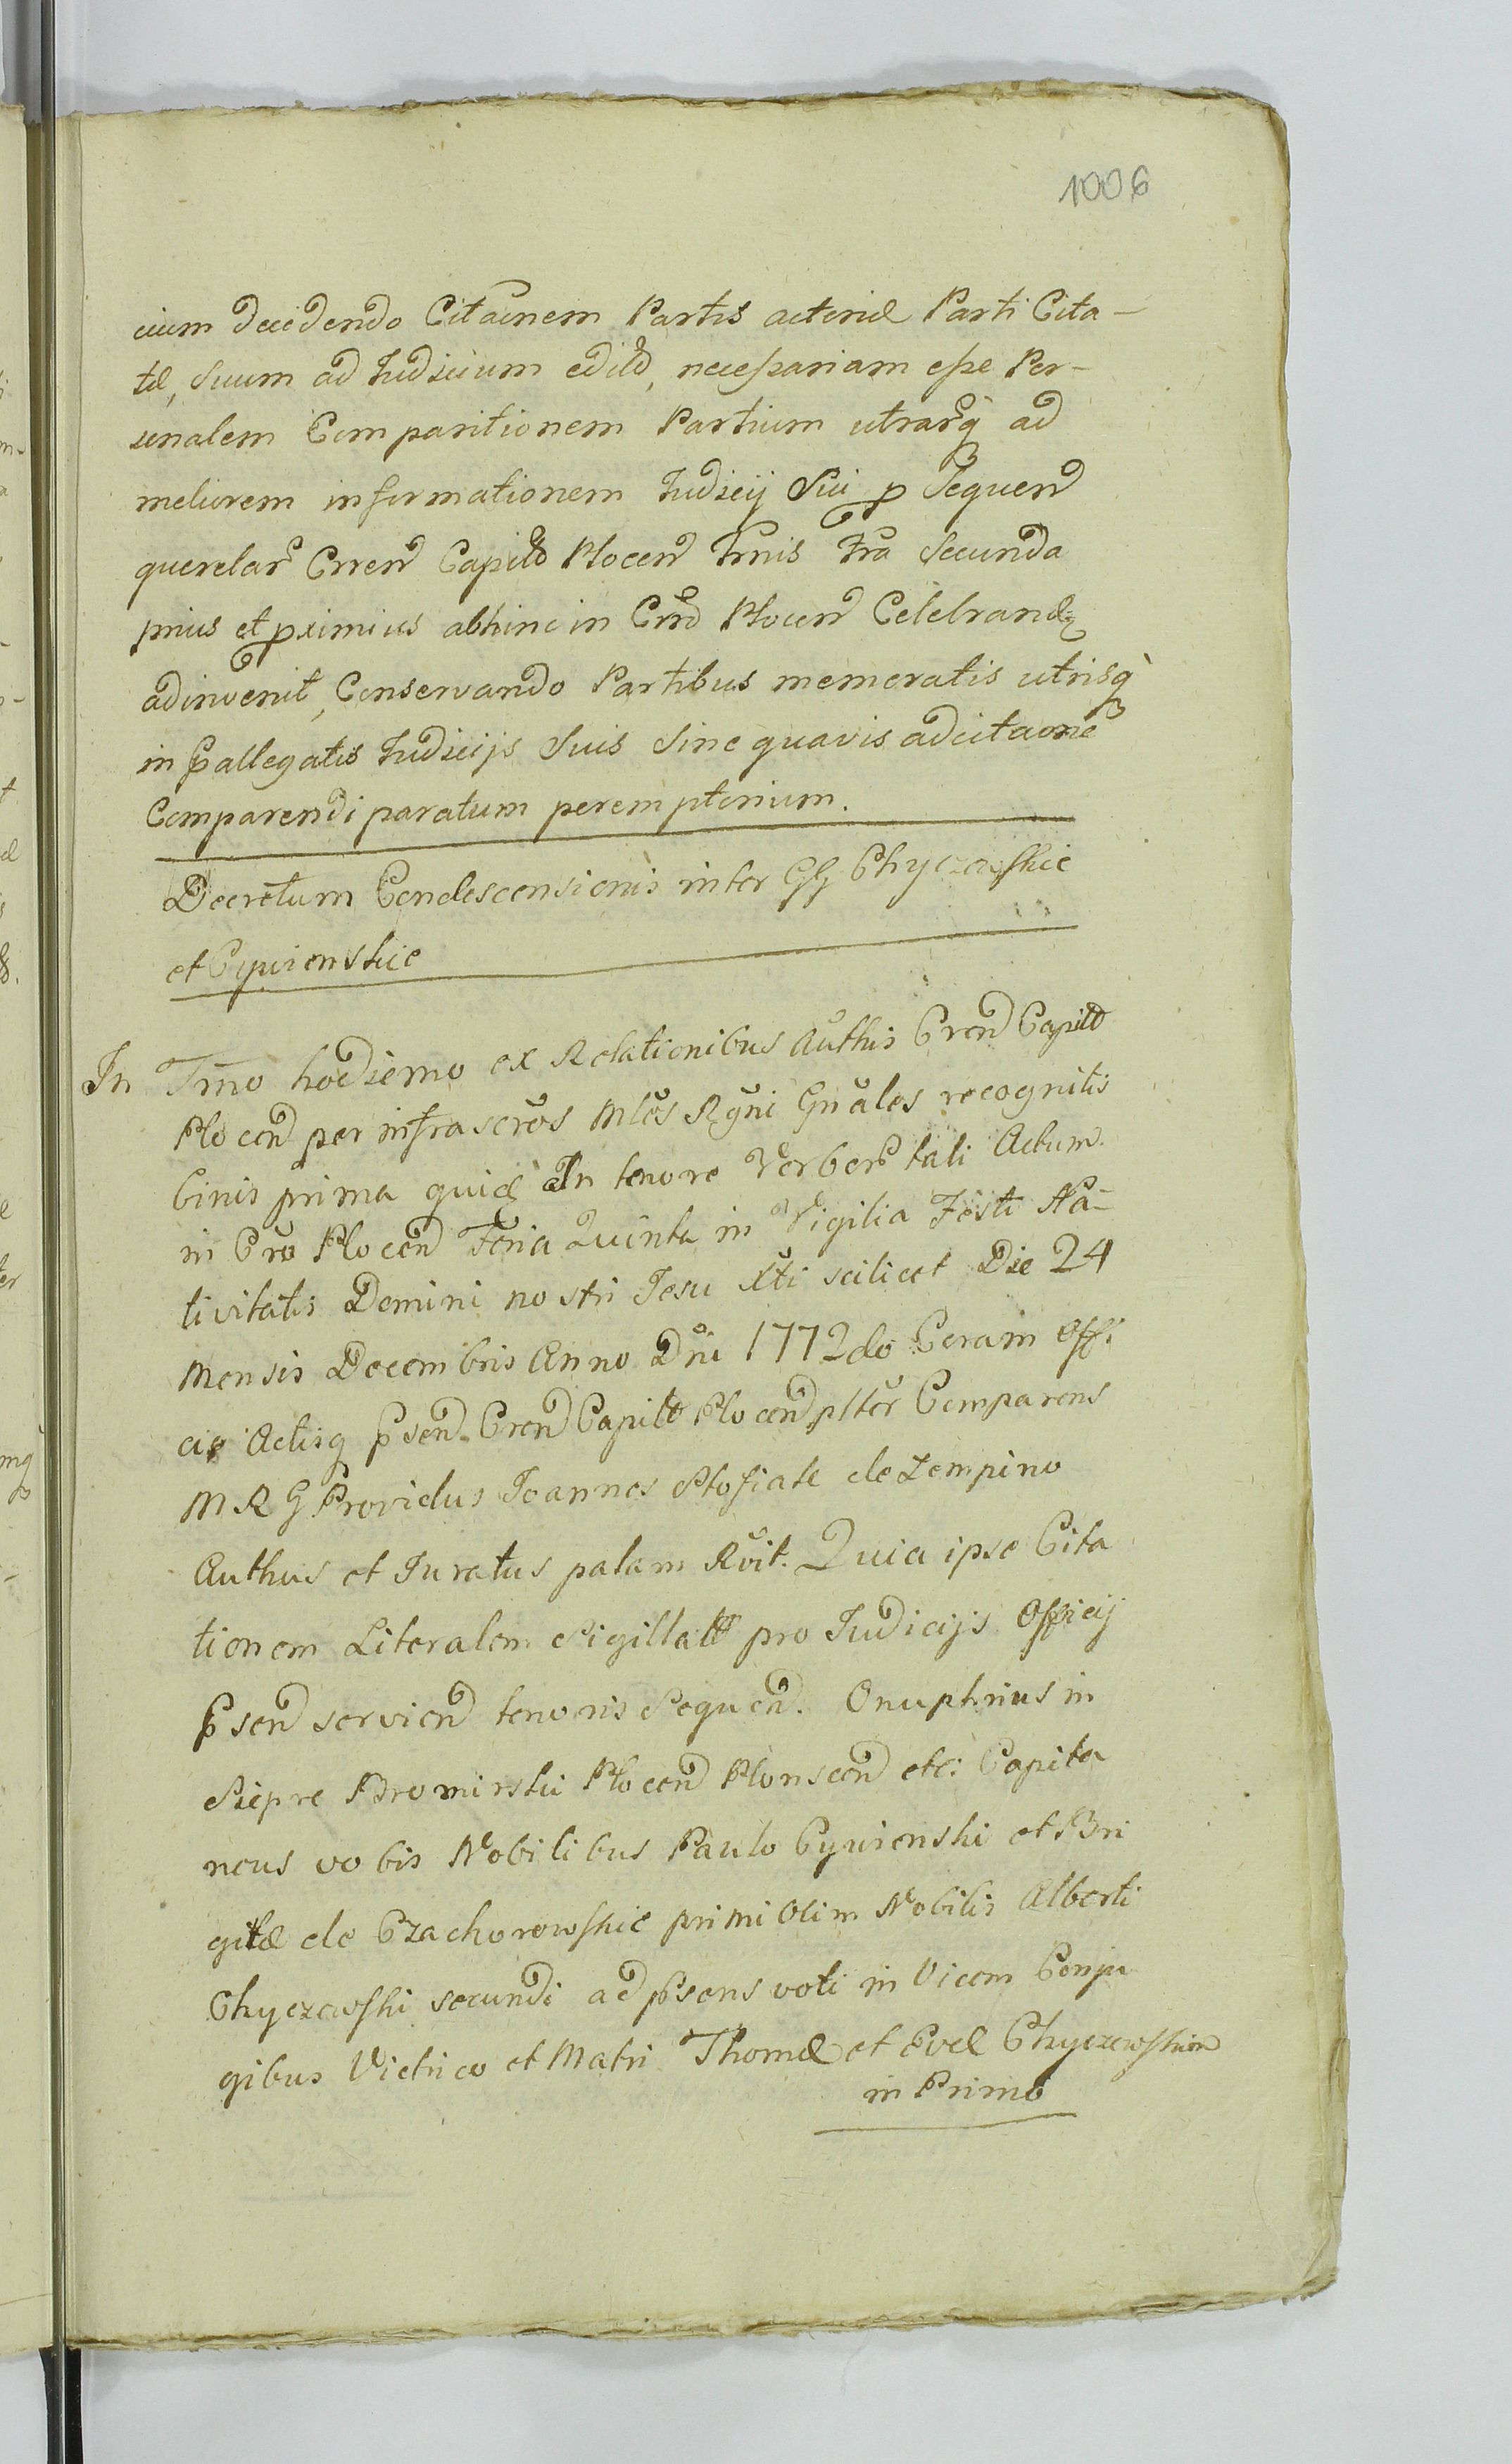 1006
cium decidendo Citaõnem Partis actoreæ Parti Cita-
tæ, Suum ad Judicium edit͠, necessariam esse Per-
sonalem Comparitionem Partium utrarq̀ ad
meliorem informationem Judicij Sui p Sequen͠
querelar͠ Cren͠ Capit͠ Plocen͠ Trnis Fra Secunda
prius et proximius abhinc in C͠ro Plocen͠ Celebrand͠
adinvenit, Conservando Partibus memoratis utrisq̀
in Pallegatis Judicijs Suis Sine quavis adcitaone
Comparendi paratum peremptorium.
Decretum Condescensionis inter GG Chyczewskie
et Cywienskie
In Tm̃o hodierno ex Relationibus Authis Cren͠ Capit͠
Plocen͠ per infrascrõs Mlĕs Rgñi Gñales recognitis
binis prima quid̃ In tenore Verbor͠ tali Actum
in C͠ro Plocen͠ Feria Quinta in Vigilia Festi Na-
tivitatis Domini nostri Jesu Xti scilicet Die 24
Mensis Decembris Anno Dñi 1772do Coram Offi
cio Actisq Psen͠ Cren͠ Capit͠ Plocen͠ plter Comparens
M R G Providus Joannes Stosiak de Lempino
Authus et Juratus palam Rĕvit. Quia ipse Cita
tionem Literalem Sigillat͠ pro Judicijs Officij
Psen͠ servien͠ tenoris Sequen͠. Onuphrius in
Siepre Bromirski Plocen͠ Plonscen͠ etc: Capita
neus vobis Nobilibus Paulo Cywienski et Bri
gitæ de Czachorowskie primi Olim Nobilis Alberti
Chyczewski secundi ad Psens voti in Vicem Conju
gibus Victrico et Matri Thomæ et Evæ Chyczewskim͠
in Primo